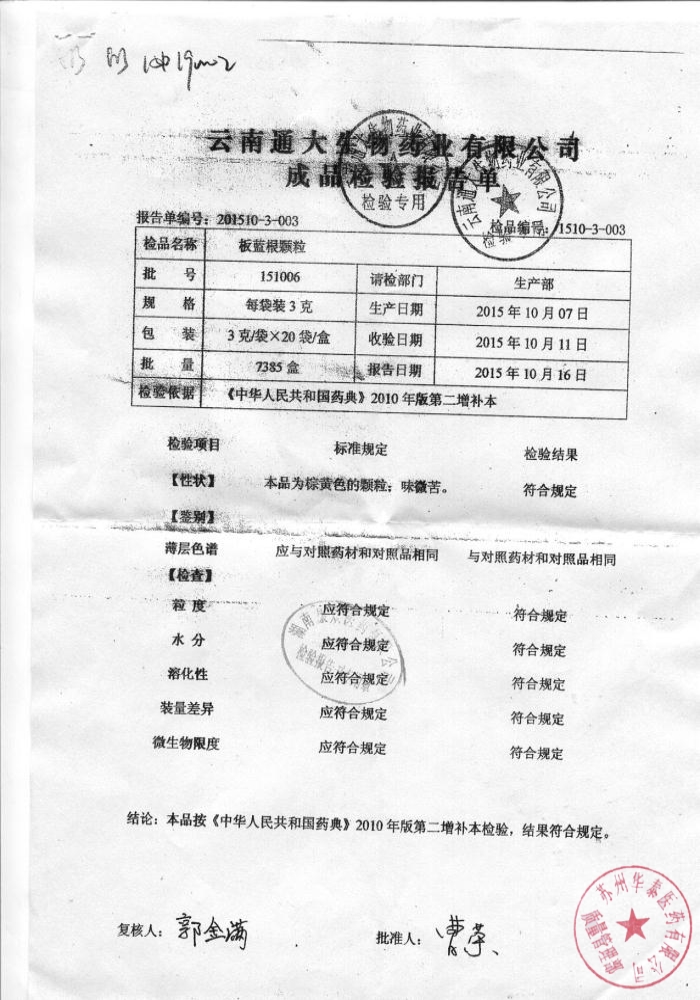 云南通大生物药业有限公司
成品检验报告单
检验专用
云南通大生物药业有限公司
报告单编号：201510-3-003 检品编号：1510-3-003
检品名称 板蓝根颗粒
批号 151006 请检部门 生产部
规格 每袋装3克 生产日期 2015年10月07日
包装 3克/袋×20袋/盒 收验日期 2015年10月11日
批量 7385盒 报告日期 2015年10月16日
检验依据 《中华人民共和国药典》2010年版第二增补本
检验项目 标准规定 检验结果
【性状】 本品为棕黄色的颗粒；味微苦。 符合规定
【鉴别】
薄层色谱 应与对照药材和对照品相同 与对照药材和对照品相同
【检查】
粒度 应符合规定 符合规定
水分 应符合规定 符合规定
溶化性 应符合规定 符合规定
装量差异 应符合规定 符合规定
微生物限度 应符合规定 符合规定
结论：本品按《中华人民共和国药典》2010年版第二增补本检验，结果符合规定。
复核人：郭金满 批准人：曹荣
苏州华泰医药有限公司
质量管理部